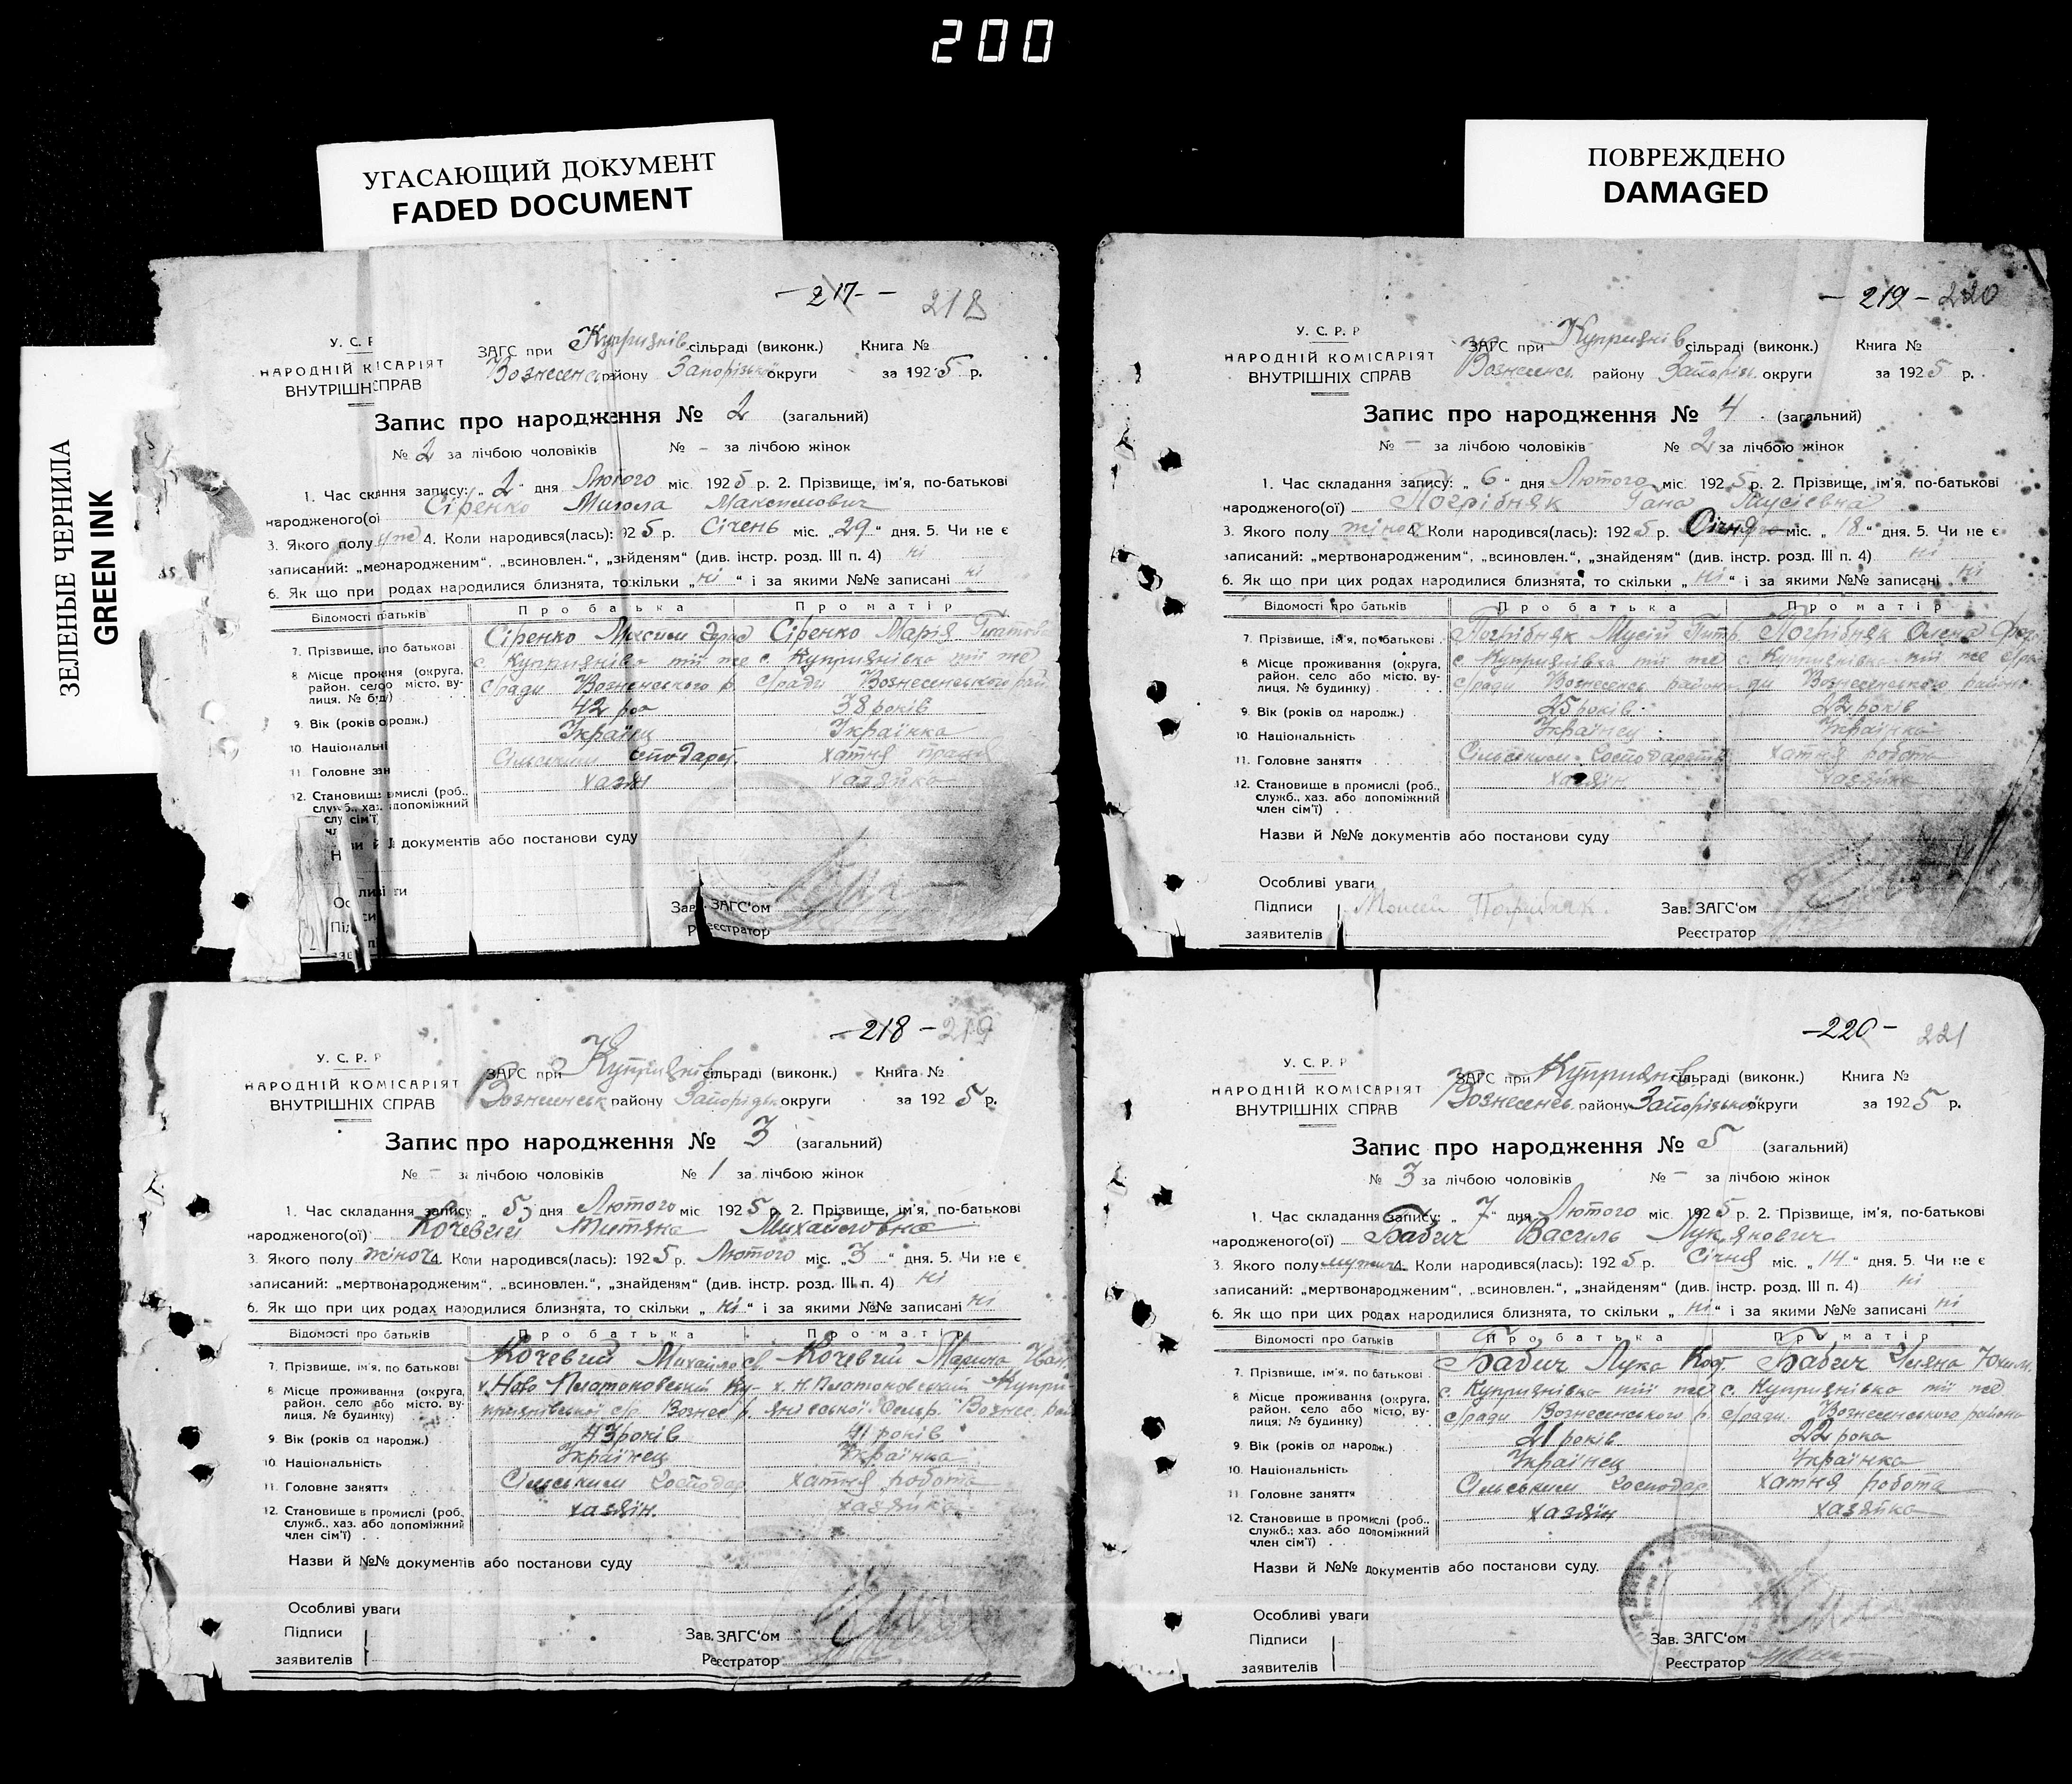 200
УГАСАЮЩИЙ ДОКУМЕНТ
FADED DOCUMENT
ПОВРЕЖДЕНО
DAMAGED
ЗЕЛЕНЫЕ ЧЕРНИЛА
GREEN INK
- 217 - 218
У. С. Р. Р
ЗАГС при Куприянів сільраді (виконк.) Книга №
НАРОДНІЙ К ІСАРІЯТ
Вознесенс району Запорізької округи за 1925 р.
ВНУТРІШН СПРАВ
Запис про народження № 2 (загальний)
№ 2 за лічбою чоловіків № - за лічбою жінок
1. Час скл ння запису: „ 2 “ дня Лютого міс 1925 р. 2. Прізвище, ім'я, по-батькові
народженого(ої Сіренко Микола Максимович
3. Якого полу 4. Коли народився(лась): 1925 р. Січень міс. „29“ дня. 5. Чи не є
записаний: „ме онародженим“, „всиновлен.“, „знайденям“ (див. інстр. розд. III п. 4) ні
6. Як що при родах народилися близнята, то скільки „ні“ і за якими №№ записані ні
Відомості батьків Про батька Про матір
7. Прізвище, і по батькові Сіренко Максим Сіренко Марія
8 Місце прож ня (округа, с. Куприянівка тії же с. Куприянівка тії же
район. село місто, ву-
лиця, № буд ) с/ради Вознесенського р. с/ради Вознесенського рай
9. Вік (років о родж.) 42 38 років
10. Національні Українец Українка
11. Головне зан Сільським господарст хатня праця
12. Становищ мислі (роб., хазяін хазяйка
служб., хаз. допоміжний
член сім'ї)
документів або постанови суду
Зав. ЗАГС'ом
Реєстратор
- 219 - 220
У. С. Р. Р
ЗАГС при Куприянів сільраді (виконк.) Книга №
НАРОДНІЙ КОМІСАРІЯТ
Вознесенс. району Запоріз. округи за 1925 р.
ВНУТРІШНІХ СПРАВ
Запис про народження № 4 (загальний)
№ — за лічбою чоловіків № 2 за лічбою жінок
1. Час складання запису: „ 6 “ дня Лютого міс 1925 р. 2. Прізвище, ім'я, по-батькові
народженого(ої) Погрібняк Гана Мусіевна
3. Якого полу жіноч 4. Коли народився(лась): 1925 р. Січня міс. „ 18 “ дня. 5. Чи не є
записаний: „мертвонародженим“, „всиновлен.“, „знайденям“ (див. інстр. розд. III п. 4) ні
6. Як що при цих родах народилися близнята, то скільки „ ні “ і за якими №№ записані ні
Відомості про батьків Про батька Про матір
7. Прізвище, ім'я, по-батькові Погрібняк Мусій Погрібняк Олена
8 Місце проживання (округа, с. Куприянівка тії же с. Куприянівка тії же
район. село або місто, ву-
лиця, № будинку) с/ради Вознесенс район Вознесенського району
9. Вік (років од народж.) 25 років 22 років
10. Національність Українец Українка
11. Головне заняття Сільським Господарств хатня робота
12. Становище в промислі (роб., хазяін хазяйка
служб., хаз. або допоміжний
член сім'ї)
Назви й №№ документів або постанови суду
Особливі уваги
Підписи Зав. ЗАГС'ом
заявителів Реєстратор
- 218 - 219
У. С. Р. Р
ЗАГС при Куприянів сільраді (виконк.) Книга №
НАРОДНІЙ КОМІСАРІЯТ
Вознесенськ району Запорізьк округи за 1925 р.
ВНУТРІШНІХ СПРАВ
Запис про народження № 3 (загальний)
№ — за лічбою чоловіків № 1 за лічбою жінок
1. Час складання запису: „ 5 “ дня Лютого міс 1925 р. 2. Прізвище, ім'я, по-батькові
народженого(ої) Кочевий Титяна Михайловна
3. Якого полу жіноч 4. Коли народився(лась): 1925 р. Лютого міс. „ 3 “ дня. 5. Чи не є
записаний: „мертвонародженим“, „всиновлен.“, „знайденям“ (див. інстр. розд. III п. 4) ні
6. Як що при цих родах народилися близнята, то скільки „ ні “ і за якими №№ записані ні
Відомості про батьків Про батька Про матір
7. Прізвище, ім'я, по батькові Кочевий Михайло Кочевий Марина Іван.
8 Місце проживання (округа, х. Ново Платоновський Ку- х. Н. Платоновський Купри-
район. село або місто, ву-
лиця, № будинку) приянівської с/р. Вознес р. янівської Вознес. рай
9. Вік (років од народж.) 43 років 41 років
10. Національність Українец Українка
11. Головне заняття Сільським господар хатня робота
12. Становище в промислі (роб., хазяін. хазяйка
служб., хаз. або допоміжний
член сім'ї)
Назви й №№ документів або постанови суду
Особливі уваги
Підписи Зав. ЗАГС'ом
заявителів Реєстратор
- 220 - 221
У. С. Р. Р
ЗАГС при Куприянів сільраді (виконк.) Книга №
НАРОДНІЙ КОМІСАРІЯТ
Вознесенс. району Запорізької округи за 1925 р.
ВНУТРІШНІХ СПРАВ
Запис про народження № 5 (загальний)
№ 3 за лічбою чоловіків № — за лічбою жінок
1. Час складання запису: „ 7 “ дня Лютого міс. 1925 р. 2. Прізвище, ім'я, по-батькові
народженого(ої) Бабич Василь Лукянович
3. Якого полу мужич 4. Коли народився(лась): 1925 р. Січня міс. „ 14 “ дня. 5. Чи не є
записаний: „мертвонародженим“, „всиновлен.“, „знайденям“ (див. інстр. розд. III п. 4) ні
6. Як що при цих родах народилися близнята, то скільки „ ні “ і за якими №№ записані ні
Відомості про батьків Про батька Про матір
7. Прізвище, ім'я, по батькові Бабич Лука Бабич Уляна Юхим.
8 Місце проживання (округа, с. Куприянівка тії же с. Куприянівка тії же
район. село або місто, ву-
лиця, № будинку) с/ради Вознесенського р. с/ради Вознесенського району
9. Вік (років од народж.) 21 років 22 рока
10. Національність Українец Українка
11. Головне заняття Сільським господар хатня робота
12. Становище в промислі (роб., хазяін хазяйка
служб.; хаз. або допоміжний
член сім'ї)
Назви й №№ документів або постанови суду.
Особливі уваги
Підписи Зав. ЗАГС'ом
заявителів Реєстратор